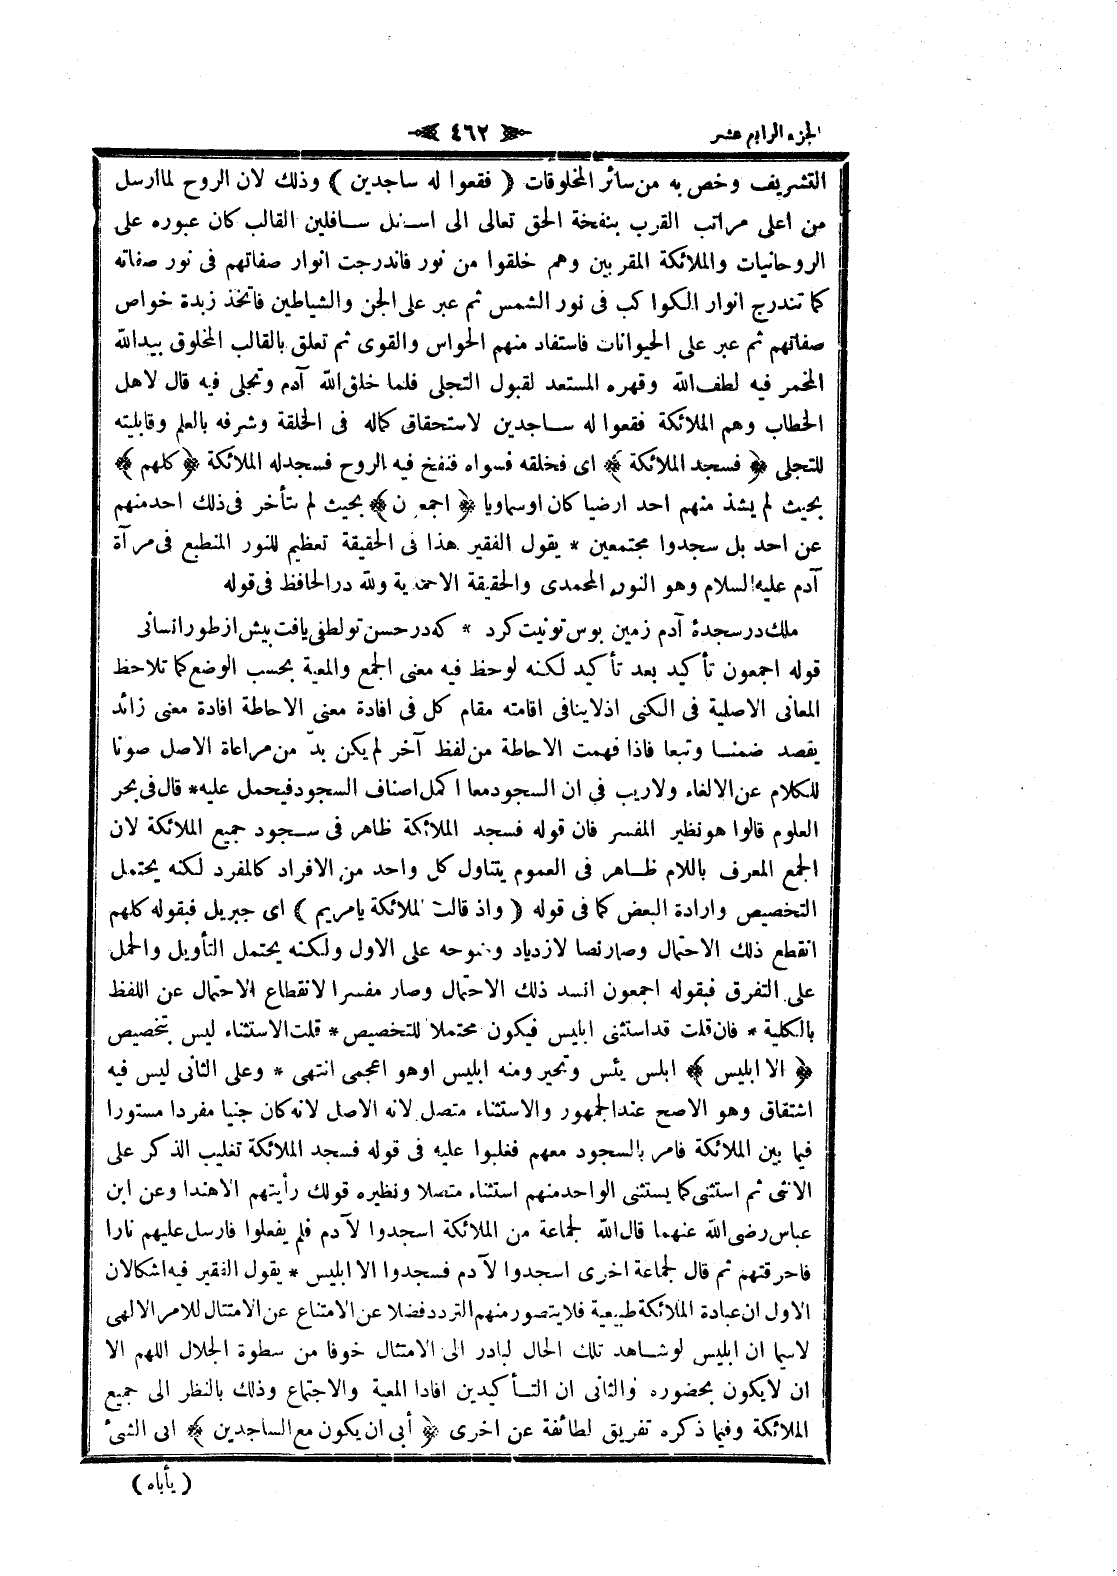 الجزء الرابع عشر
٤٦٢
التشريف وخص به من سائر المخلوقات ( فقعوا له ساجدين ) وذلك لان الروح لما ارسل
من اعلى مراتب القرب بنفخة الحق تعالى الى اسفل سافلين القالب كان عبوره على
الروحانيات والملائكة المقربين وهم خلقوا من نور فاندرجت انوار صفاتهم فى نور صفاته
كما تندرج انوار الكواكب فى نور الشمس ثم عبر على الجن والشياطين فاتخذ زبدة خواص
صفاتهم ثم عبر على الحيوانات فاستفاد منهم الحواس والقوى ثم تعلق بالقالب المخلوق بيد الله
المخمر فيه لطف الله وقهره المستعد لقبول التجلى فلما خلق الله آدم وتجلى فيه قال لاهل
الخطاب وهم الملائكة فقعوا له ساجدين لاستحقاق كماله فى الخلقة وشرفه بالعلم وقابليته
للتجلى ﴿ فسجد الملائكة ﴾ اى فخلقه فسواه فنفخ فيه الروح فسجد له الملائكة ﴿ كلهم ﴾
بحيث لم يشذ منهم احد ارضيا كان او سماويا ﴿ اجمعون ﴾ بحيث لم يتأخر فى ذلك احد منهم
عن احد بل سجدوا مجتمعين * يقول الفقير هذا فى الحقيقة تعظيم للنور المنطبع فى مرآة
آدم عليه السلام وهو النور المحمدى والحقيقة الاحمدية ولله در الحافظ فى قوله
ملك در سجدۀ آدم زمين بوس تو نيت كرد * كه در حسن تو لطفى يافت بيش از طور انسانى
قوله اجمعون تأكيد بعد تأكيد لكنه لوحظ فيه معنى الجمع والمعية بحسب الوضع كما تلاحظ
المعانى الاصلية فى الكنى اذ لا ينافى اقامته مقام كل فى افادة معنى الاحاطة افادة معنى زائد
يقصد ضمنا وتبعا فاذا فهمت الاحاطة من لفظ آخر لم يكن بدّ من مراعاة الاصل صونا
للكلام عن الالغاء ولا ريب فى ان السجود معا اكمل اصناف السجود فيحمل عليه * قال فى بحر
العلوم قالوا هو نظير المفسر فان قوله فسجد الملائكة ظاهر فى سجود جميع الملائكة لان
الجمع المعرف باللام ظاهر فى العموم يتناول كل واحد من الافراد كالمفرد لكنه يحتمل
التخصيص وارادة البعض كما فى قوله ( واذ قالت الملائكة يا مريم ) اى جبريل فبقوله كلهم
انقطع ذلك الاحتمال وصار نصا لازدياد وضوحه على الاول ولكنه يحتمل التأويل والحمل
على التفرق فبقوله اجمعون انسد ذلك الاحتمال وصار مفسرا لانقطاع الاحتمال عن اللفظ
بالكلية * فان قلت قد استثنى ابليس فيكون محتملا للتخصيص * قلت الاستثناء ليس بتخصيص
﴿ الا ابليس ﴾ ابلس يئس وتحير ومنه ابليس او هو اعجمى انتهى * وعلى الثانى ليس فيه
اشتقاق وهو الاصح عند الجمهور والاستثناء متصل لانه الاصل لانه كان جنيا مفردا مستورا
فيما بين الملائكة فامر بالسجود معهم فغلبوا عليه فى قوله فسجد الملائكة تغليب الذكر على
الانثى ثم استثنى كما يستثنى الواحد منهم استثناء متصلا ونظيره قولك رأيتهم الا هندا وعن ابن
عباس رضى الله عنهما قال الله لجماعة من الملائكة اسجدوا لآدم فلم يفعلوا فارسل عليهم نارا
فاحرقتهم ثم قال لجماعة اخرى اسجدوا لآدم فسجدوا الا ابليس * يقول الفقير فيه اشكالان
الاول ان عبادة الملائكة طبيعية فلا يتصور منهم التردد فضلا عن الامتناع عن الامتثال للامر الالهى
لا سيما ان ابليس لو شاهد تلك الحال لبادر الى الامتثال خوفا من سطوة الجلال اللهم الا
ان لا يكون بحضوره والثانى ان التأكيدين افادا المعية والاجتماع وذلك بالنظر الى جميع
الملائكة وفيما ذكره تفريق لطائفة عن اخرى ﴿ أبى ان يكون مع الساجدين ﴾ ابى الشئ
( يأباه )